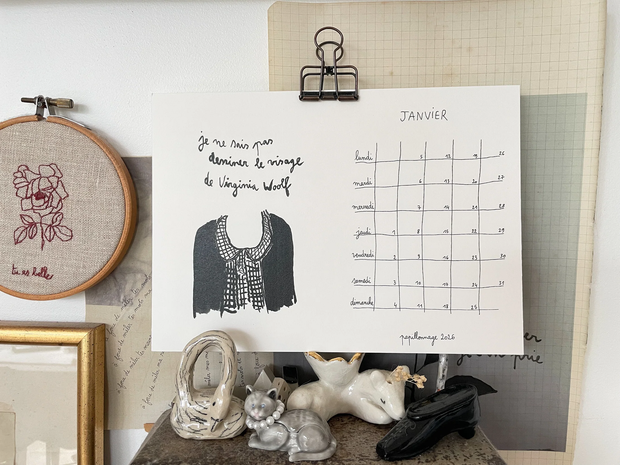 JANVIER
je ne sais pas
dessiner le visage
de Virginia Woolf
lundi 5 12 19 26
mardi 6 13 20 27
mercredi 7 14 21 28
jeudi 1 8 15 22 29
vendredi 2 9 16 23 30
samedi 3 10 17 24 31
dimanche 4 11 18 25
papillonnage 2026
tu es belle